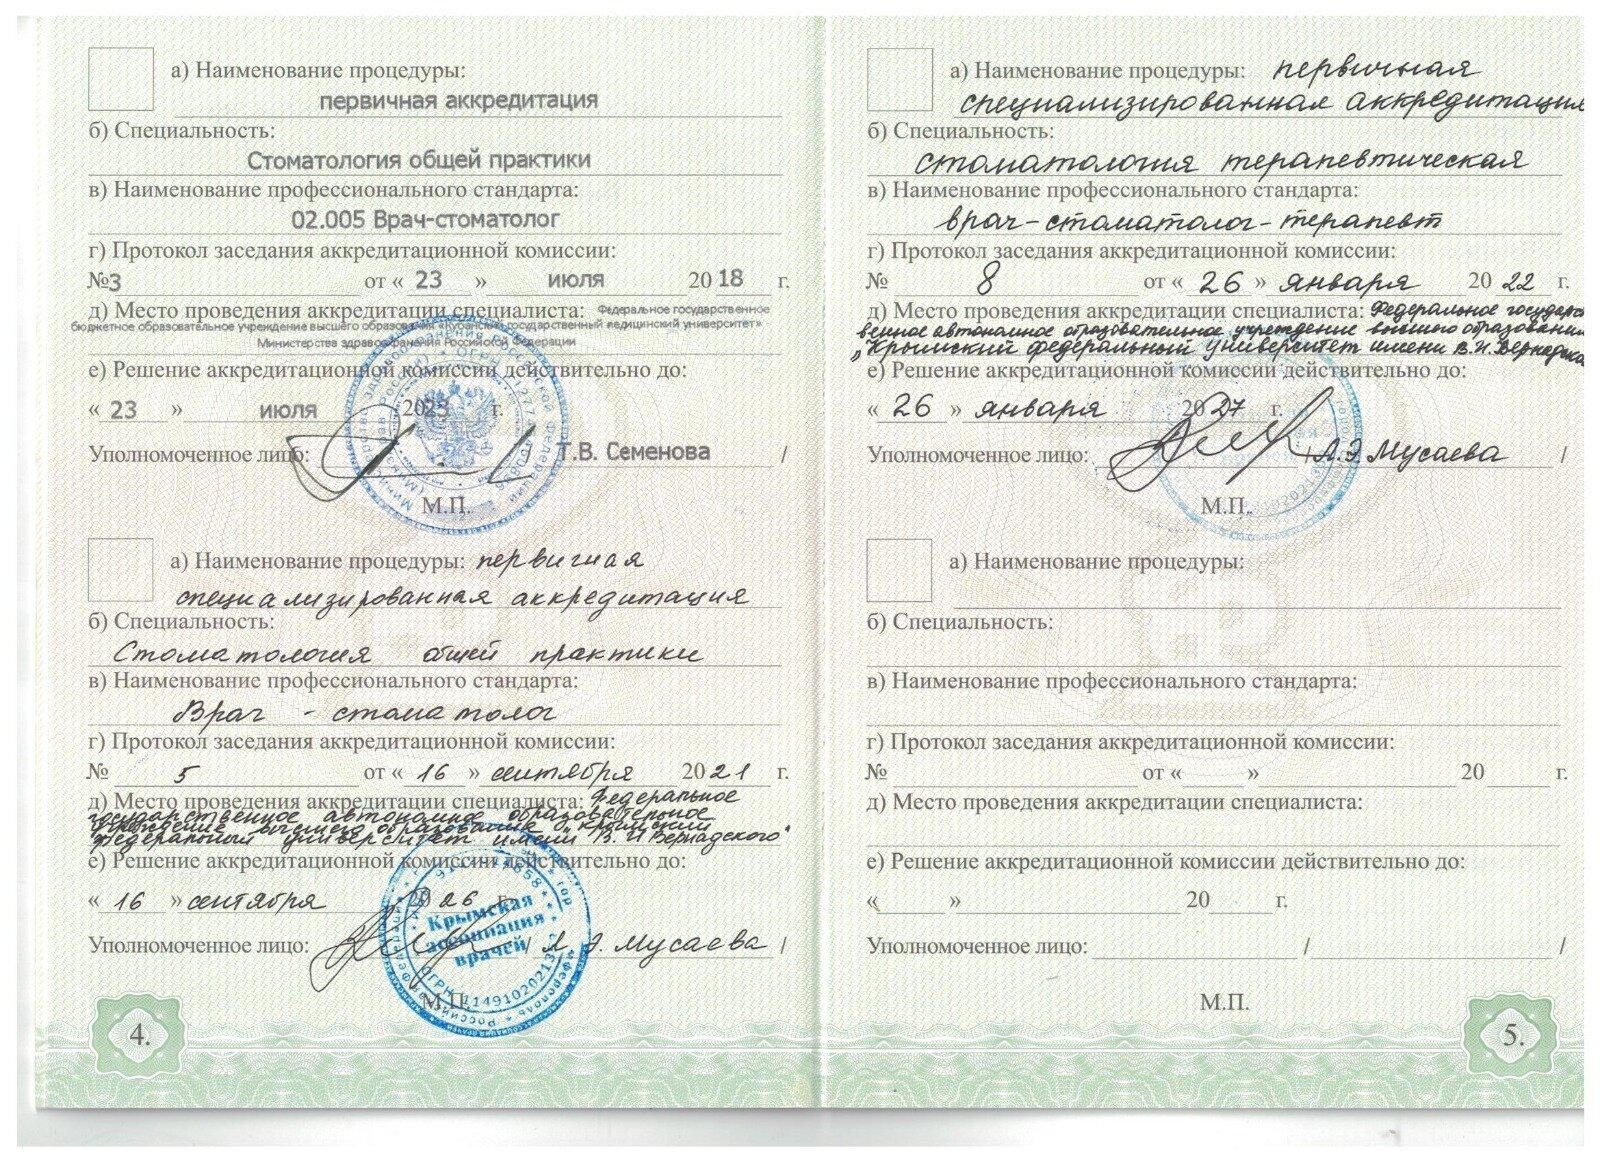 а) Наименование процедуры:
первичная аккредитация
б) Специальность:
Стоматология общей практики
в) Наименование профессионального стандарта:
02.005 Врач-стоматолог
г) Протокол заседания аккредитационной комиссии:
№3 от « 23 » июля 2018 г.
д) Место проведения аккредитации специалиста: Федеральное государственное
бюджетное образовательное учреждение высшего образования «Кубанский государственный медицинский университет»
Министерства здравоохранения Российской Федерации
е) Решение аккредитационной комиссии действительно до:
« 23 » июля 2023 г.
Уполномоченное лицо: Т.В. Семенова /
М.П.
а) Наименование процедуры: первичная
специализированная аккредитация
б) Специальность:
Стоматология общей практики
в) Наименование профессионального стандарта:
Врач - стоматолог
г) Протокол заседания аккредитационной комиссии:
№ 5 от « 16 » сентября 2021 г.
д) Место проведения аккредитации специалиста: Федеральное
государственное автономное образовательное
учреждение высшего образования "Крымский
федеральный университет имени В. И Вернадского"
е) Решение аккредитационной комиссии действительно до:
« 16 » сентября 2026 г.
Крымская
ассоциация
врачей
Уполномоченное лицо: / Л Э. Мусаева /
М.П.
4.
а) Наименование процедуры: первичная
специализированная аккредитация
б) Специальность:
стоматология терапевтическая
в) Наименование профессионального стандарта:
врач-стоматолог-терапевт
г) Протокол заседания аккредитационной комиссии:
№ 8 от « 26 » января 2022 г.
д) Место проведения аккредитации специалиста: Федеральное государст
венное автономное образовательное учреждение высшего образования
"Крымский федеральный университет имени В.И. Вернадско
е) Решение аккредитационной комиссии действительно до:
« 26 » января 2027 г.
Уполномоченное лицо: / Л.Э Мусаева /
М.П.
а) Наименование процедуры:
б) Специальность:
в) Наименование профессионального стандарта:
г) Протокол заседания аккредитационной комиссии:
№ от « » 20 г.
д) Место проведения аккредитации специалиста:
е) Решение аккредитационной комиссии действительно до:
« » 20 г.
Уполномоченное лицо: / /
М.П.
5.